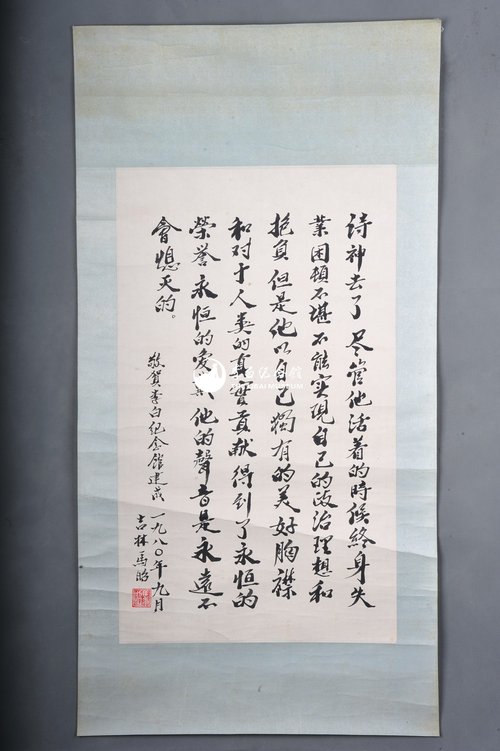 诗神去了尽管他活着的時候終身失
業困頓不堪不能实現自己的政治理想和
抱負但是他以自己獨有的美好胸襟
和对于人类的真實貢献得到了永恒的
榮誉永恒的爱他的聲音是永遠不
會熄灭的。
敬賀李白纪念館建成
一九八〇年九月
吉林馬昭
MUSEUM